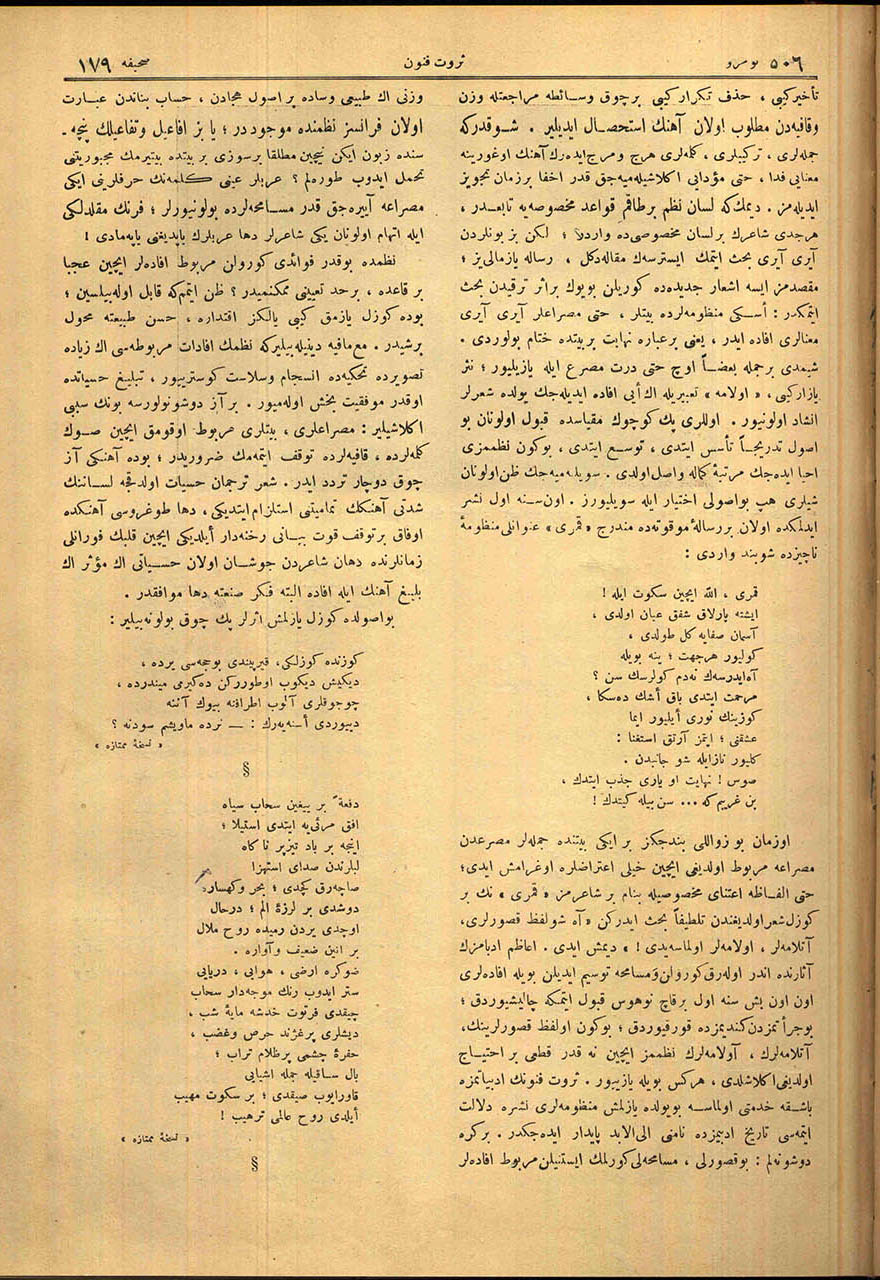 نومرو ٥٠٦
ثروت فنون
صحیفه ١٧٩
تأخیر کبی ، حذف تکرار کبی بر چوق وسائطه مراجعتله وزن
وقافیه‌دن مطلوب اولان آهنك استحصال ایدیلیر . شوقدرکه
جمله‌لری ، ترکیبلری ، کله‌لری هرج ومرج ایده‌رك آهنك اوغورینه
معنایی فدا ، حتی مؤدایی اکلاشیله‌میه‌جق قدر اخفا بر زمان تجویز
ایدیله‌مز . دیمك‌که لسان نظم بر طاقم قواعد مخصوصه‌یه تابعدر ،
هرجدی شاعرك بر لسان مخصوصی ده واردر ؛ لکن بز بونلردن
آیری آیری بحث ایتمك ایسترسه‌ك مقاله دکل ، رساله یازمالی‌یز ؛
مقصدمز ایسه اشعار جدیده‌ده کوریلن بویوك بر اثر ترقیدن بحث
ایتمکدر : أسکی منظومه‌لرده بیتلر ، حتی مصراعلر آیری آیری
معنالری افاده ایدر ، یعنی بر عباره نهایت بر بیتده ختام بولوردی .
شیمدی بر جمله بعضاً اوچ حتی درت مصرع ایله یازیلیور ؛ نثر
یازار کبی ، « اولامه » تعبیریله اك أیی افاده ایدیله‌جك یولده شعرلر
انشاد اولونیور . اوللری پك کوچوك مقیاسده قبول اولونان بو
اصول تدریجاً تأسس ایتدی ، توسع ایتدی ، بوکون نظممزی
احیا ایده‌جك مرتبۀ کماله واصل اولدی . سویله‌میه‌جك ظن اولونان
شیلری هپ بو اصولی اختیار ایله سویلیورز . اون سنه اول نشر
ایدلمکده اولان بر رسالۀ موقوته‌ده مندرج « قمری » عنوانلی منظومۀ
ناچیزده شوبند واردی :
قمری ، الله ایچین سکوت ایله !
ایشته پارلاق شفق عیان اولدی ،
آسمان صفایه کل طولدی ،
کولیور هرجهت ؛ ینه بویله
آه ایدرسه‌ك نه‌دم کولرسك سن ؟
مرحمت ایتدی باق أشك ده سکا ،
کوزینك نوری أیلیور ایما
عشقنی ؛ ایتمز آرتق استغنا :
کلیور ناز ایله شو جانبدن .
صوس ! نهایت او یاری جذب ایتدك ،
بن غریبم‌که ... سن بیله کیتدك !
اوزمان بو زواللی بندجکز بر ایکی بیتنده جمله‌لر مصرعدن
مصراعه مربوط اولدیغی ایچین خیلی اعتراضلره اوغرامش ایدی؛
حتی الفاظه اعتنای مخصوصیله بنام بر شاعرمز « قمری » نك بر
کوزل شعر اولدیغندن تلطیفاً بحث ایدرکن « آه شو لفظ قصورلری،
آتلامه‌لر ، اولامه‌لر اولماسه‌یدی ! » دیمش ایدی . اعاظم ادبامزك
آثارنده اندر اوله‌رق کورولن ومسامحه توسیم ایدیلن بویله افاده‌لری
اون اون بش سنه اول برقاچ نوهوس قبول ایتمکه چالیشیوردق ؛
بو جرأتمزدن کندیمزده قورقیوردق ؛ بوکون اولفظ قصورلرینك،
آتلامه‌لرك ، آولامه‌لرك نظممز ایچین نه قدر قطعی بر احتیاج
اولدیغی اکلاشلدی ، هرکس بویله یازییور . ثروت فنونك ادبیاتمزه
باشقه خدمتی اولماسه بویولده یازلمش منظومه‌لری نشره دلالت
ایتمه‌سی تاریخ ادبیمزده نامنی الی‌الابد پایدار ایده‌جکدر . بر کره
دوشونه‌لم : بوقصورلی ، مسامحه‌لی کورلمك ایستنیلن مربوط افاده‌لر
وزنی اك طبیعی وساده بر اصول هجادن ، حساب بناندن عبارت
اولان فرانسز نظمنده موجوددر ؛ یا بز افاعیل وتفاعیلك پنچه ـ
سنده زبون ایکن نیچین مطلقا بر سوزی بر بیتده بیتیرمك مجبوریتنی
تحمل ایدوب طوره‌لم ؟ عربلر عینی کلمه‌نك حرفلرینی ایکی
مصراعه آییره‌جق قدر مسامحه‌لرده بولونیورلر ؛ فرنك مقلدلکی
ایله اتهام اولونان یکی شاعرلر دها عربلرك یاپدیغنی یاپه‌مادی !
نظمده بوقدر فوائدی کورولن مربوط افاده‌لر ایچین عجبا
بر قاعده ، بر حد تعیینی ممکنمیدر ؟ ظن ایتمم‌که قابل اوله‌بیلسین ؛
بوده کوزل یازمق کبی یالکز اقتداره ، حسن طبیعته محول
بر شیدر . مع‌مافیه دینیله‌بیلیرکه نظمك افادات مربوطه‌سی اك زیاده
تصویرده تحکیه‌ده انسجام وسلاست کوستریبور ، تبلیغ حسیاتده
اوقدر موفقیت بخش اوله‌میور . بر آز دوشونولورسه بونك سببی
اکلاشیلیر : مصراعلری ، بیتلری مربوط اوقومق ایچین صوك
کله‌لرده ، قافیه‌لرده توقف ایتمه‌مك ضروریدر ؛ بوده آهنکی آز
چوق دوچار تردد ایدر . شعر ترجمان حسیات اولدقجه لساننك
شدتی آهنکك تمامیتنی استلزام ایتدیکی ، دها طوغروسی آهنکده
اوفاق بر توقف قوت بیانی رخنه‌دار أیلدیکی ایچین قلبك فورانلی
زمانلرنده دهان شاعردن جوشان اولان حسیاتی اك مؤثر اك
بلیغ آهنك ایله افاده البته فکر صنعته دها موافقدر .
بو اصولده کوزل یازلمش اثرلر پك چوق بولونه‌بیلیر :
کوزنده کوزلکی، قیرپیندی بوججه‌سی یرده ،
دیکیش دیکوب اوطوررکن ده‌کیرمی میندرده ،
چوجوقلری آلوب اطرافنه بیوك آننه
دییوردی أسنه‌یه‌رك : — نرده ماویشم سودنه ؟
« نسخۀ ممتازه »
§
دفعةً بر ییغین سحاب سیاه
افق مرئی‌یه ایتدی استیلا ؛
اینجه بر باد تیزپر ناکاه
لبلرندن صدای استهزا
صاچه‌رق کچدی ؛ بحر وکهسار.
دوشدی بر لرزۀ الم ؛ درحال
اوچدی یردن رمیده روح ملال
بر انین ضعیف وآواره .
صوکره ارضی ، هوایی ، دریایی
ستر ایدوب رنك موجه‌دار سحاب
چیقدی فرتوت خدشه مایۀ شب ،
دیشلری پرغژند حرص وغضب ،
حفرۀ چشمی پرظلام تراب ؛
بال ساقیله جمله اشیایی
قاورایوب صیقدی ؛ بر سکوت مهیب
أیلدی روح عالمی ترهیب !
« نسخۀ ممتازه »
§